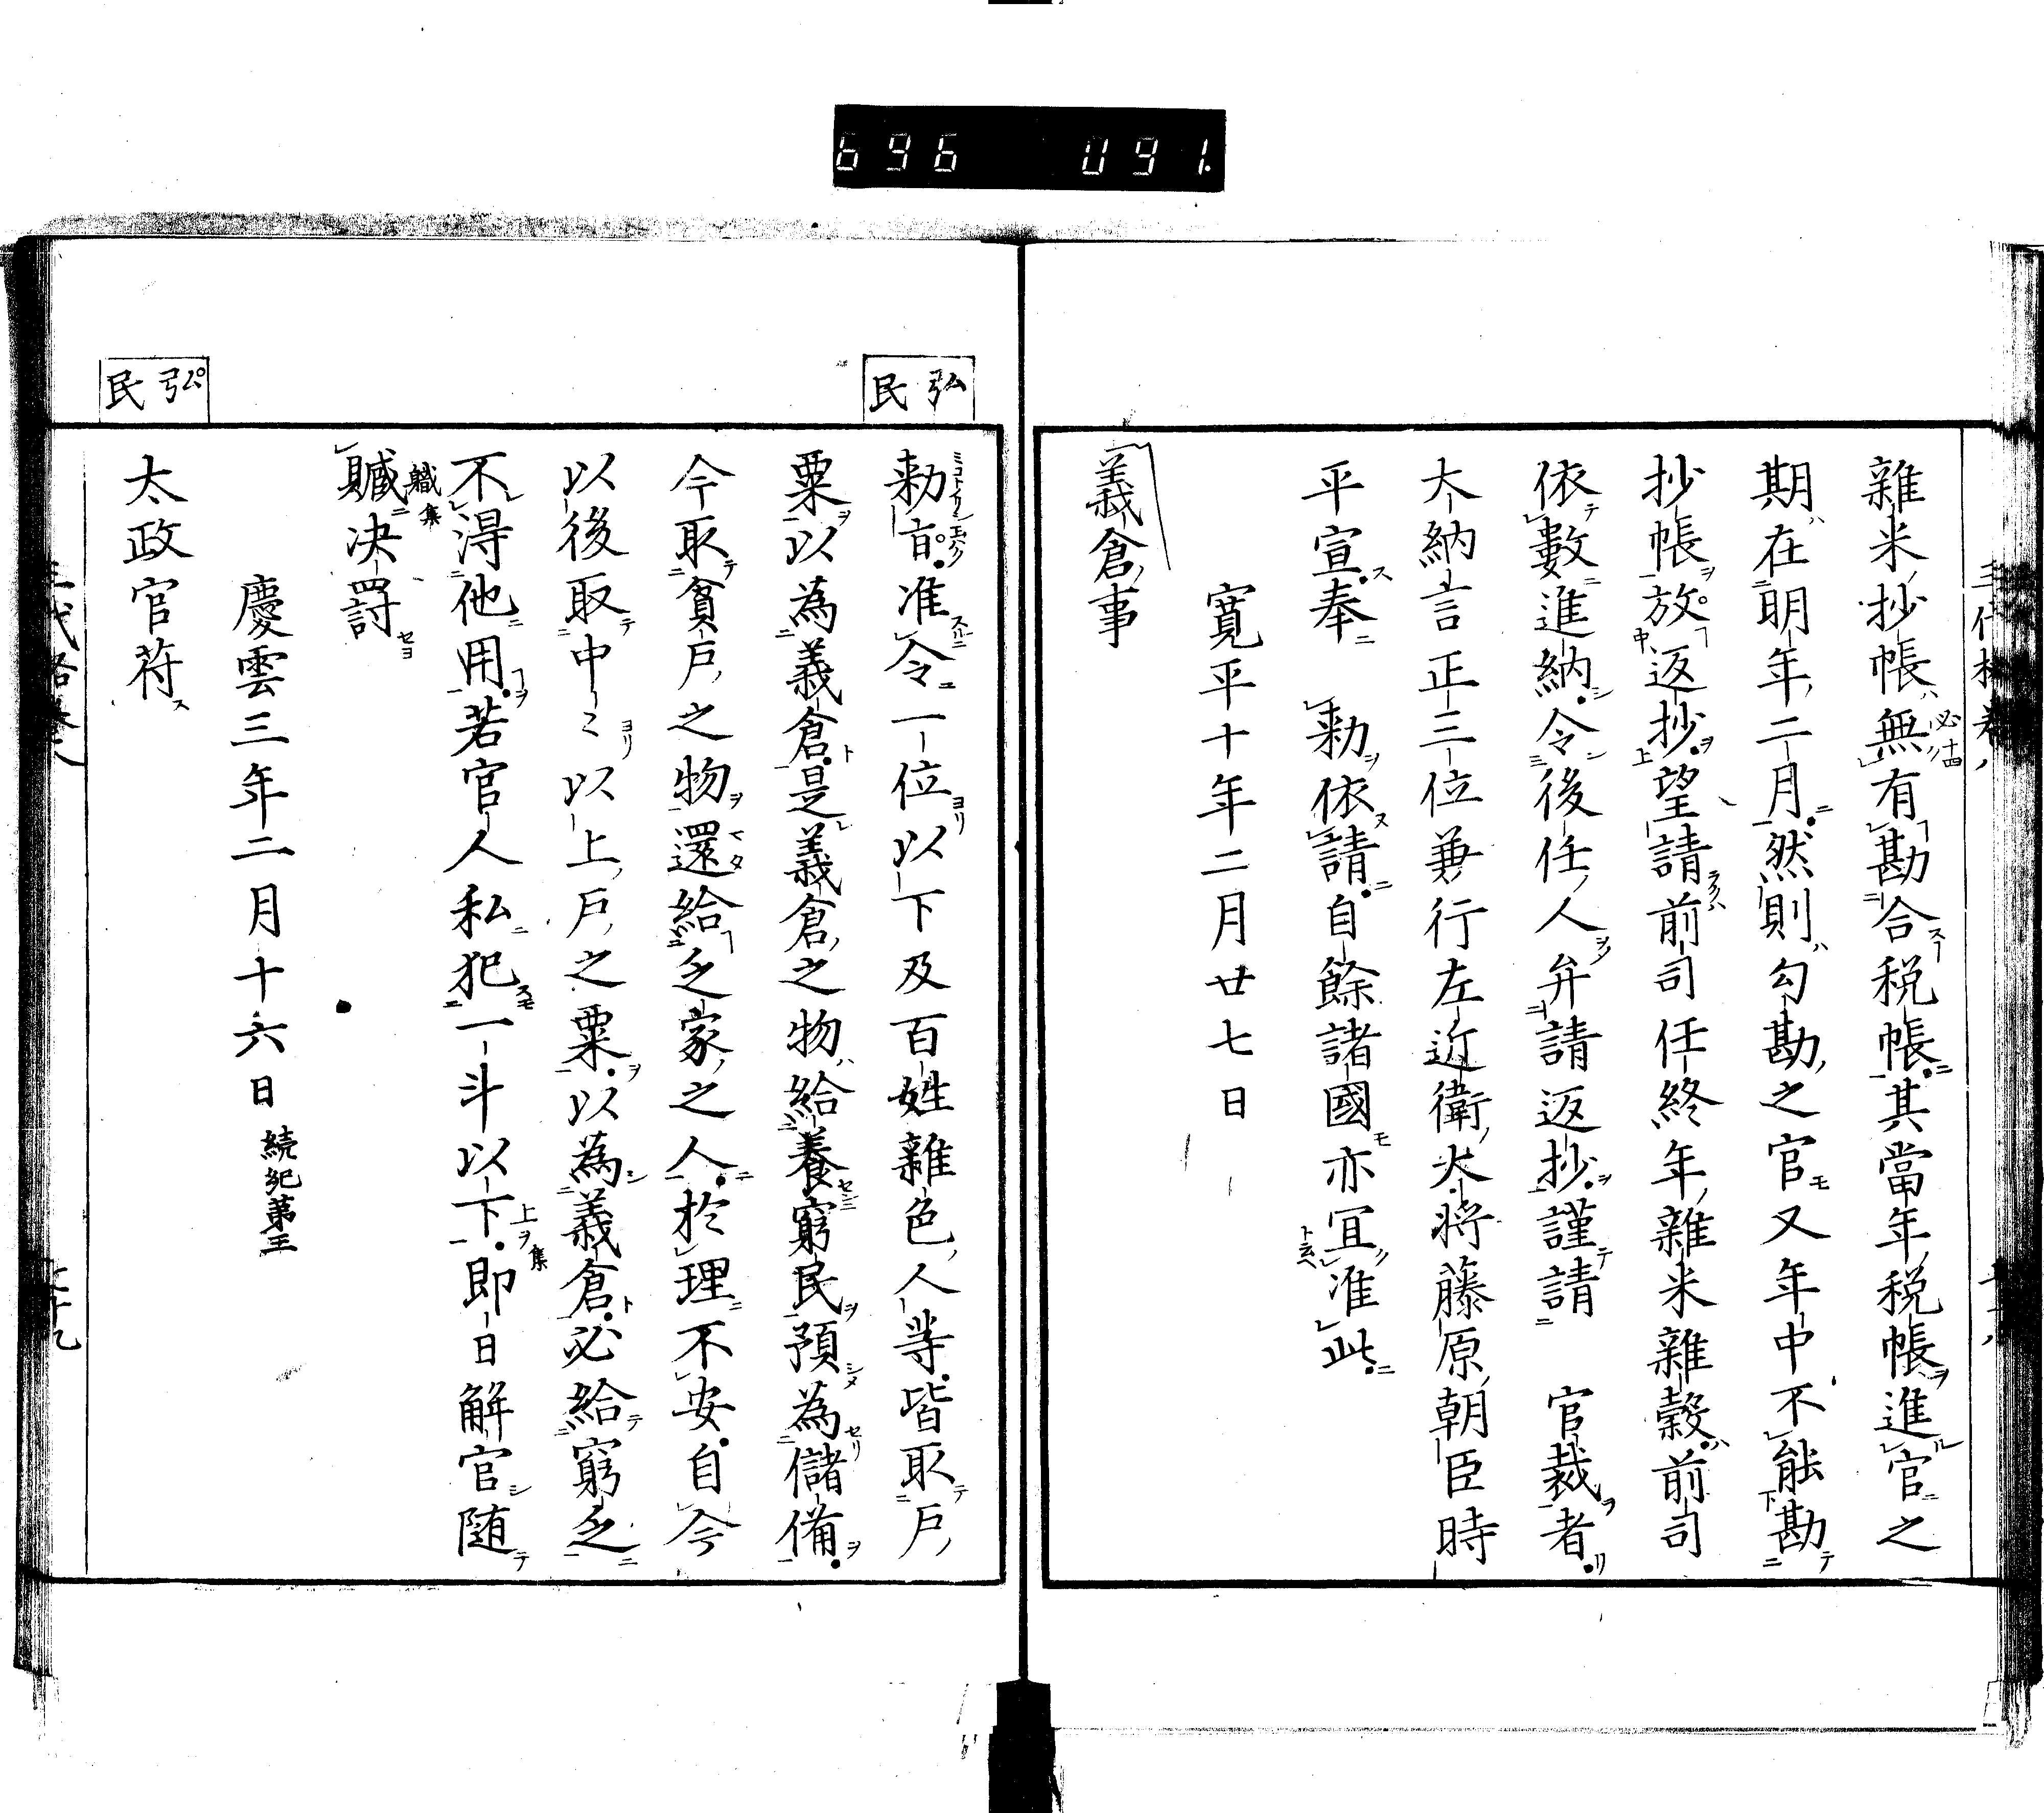 696 091.
雜米抄帳無有勘合税帳其當年税帳進官之
期在明年二月然則勾勘之官又年中不能勘
抄帳放返抄望請前司任終年雜米雜穀前司
依數進納令後任人弁請返抄謹請 官裁者
大納言正三位兼行左近衛大將藤原朝臣時
平宣奉 勅依請自餘諸國亦冝准此
寛平十年二月廿七日
義倉事
弘民
勅旨准令一位以下及百姓雜色人等皆取戸
粟以為義倉是義倉之物給養窮民預為儲備
今取貧戸之物還給乏家之人於理不安自今
以後取中〻以上戸之粟以為義倉必給窮乏
不淂他用若官人私犯一斗以下即日解官随
贓决罸
慶雲三年二月十六日 続紀第三
弘民
太政官符